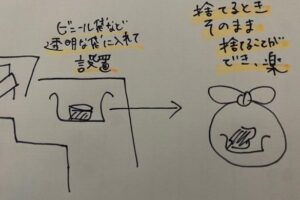 ビニール袋など
透明な袋に入れて
設置
捨てるとき
そのまま
捨てることが
でき、楽